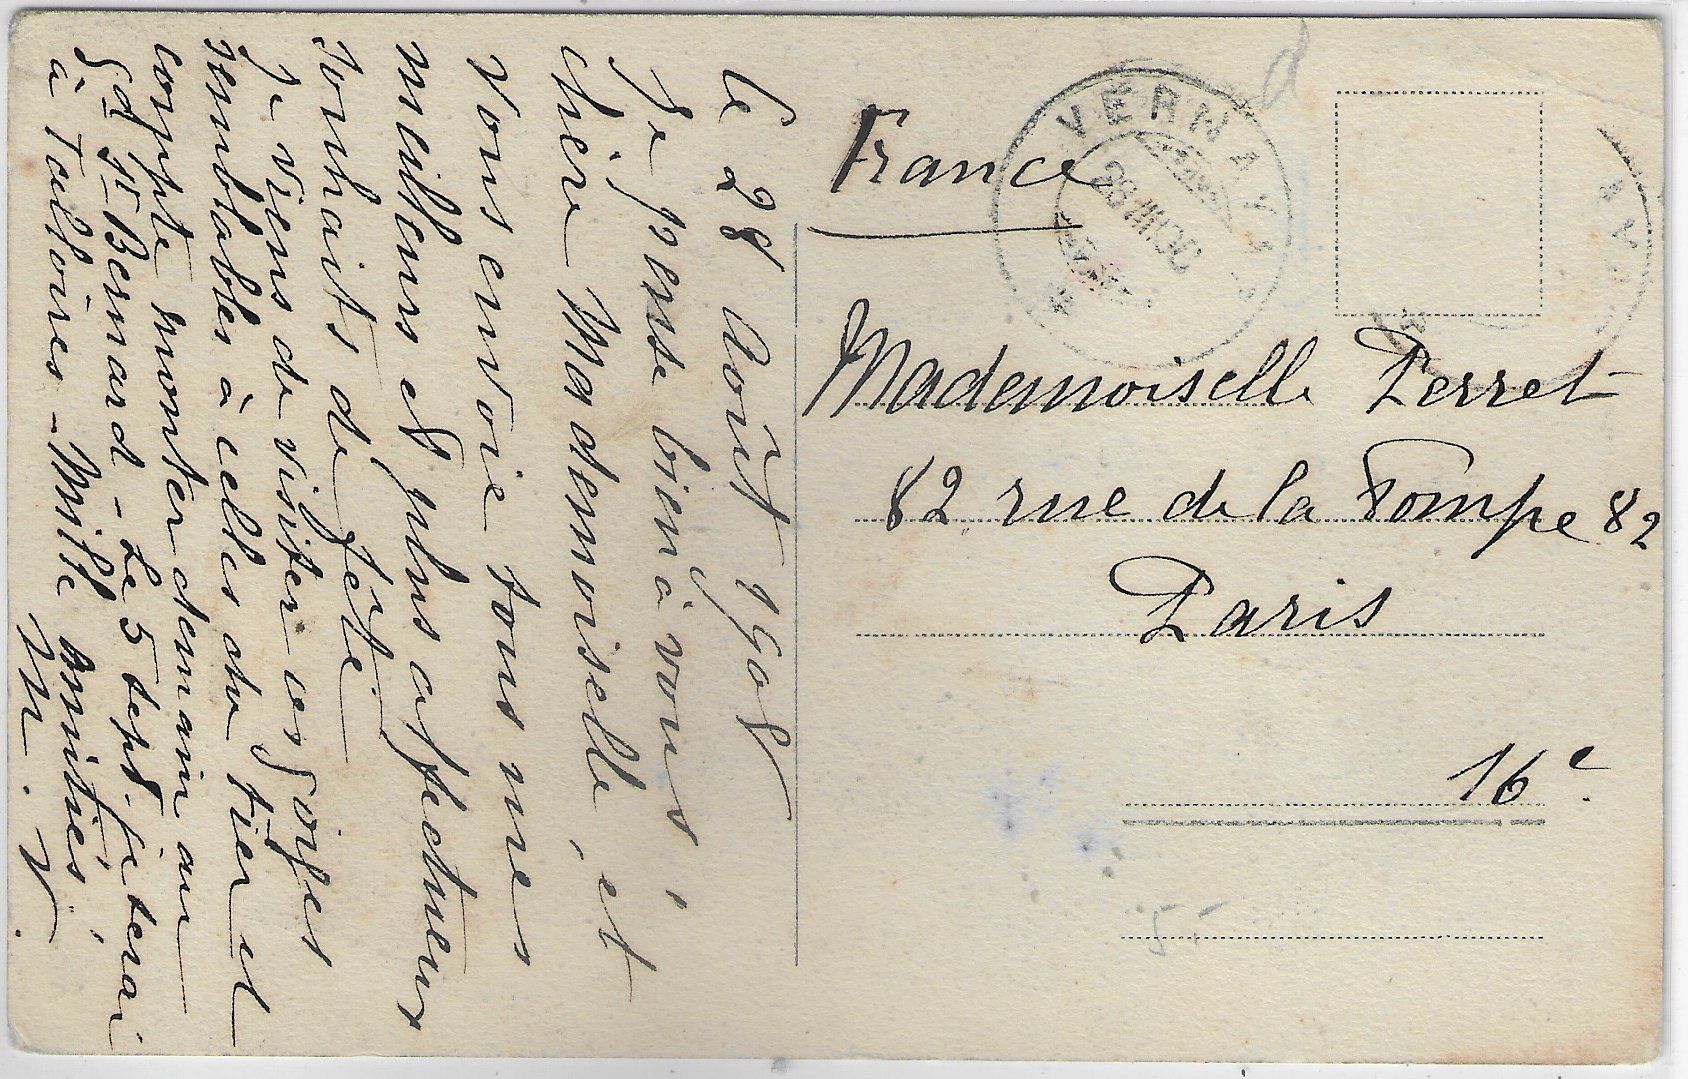 Le 28 Août 1908
Je pense bien à vous,
chère Mademoiselle, et
vous envoie tous mes
meilleurs et plus affectueux
souhaits de fête.
Je viens de visiter ces gorges
semblables à celles du Fier et
compte monter demain au
Gd St Bernard - Le 5 sept. je serai
à Talloires - Mille amitiés,
M. V.
France
VERNAYAZ
28 VIII 08
Mademoiselle Perret
82 rue de la Pompe 82
Paris
16e